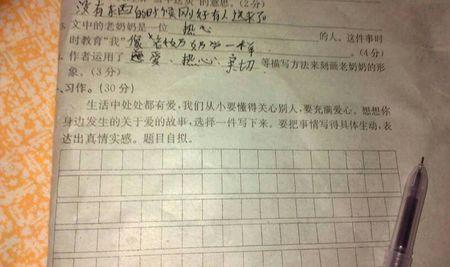 的意思。(2分)
没有东西的时候刚好有人送来了
文中的老奶奶是一位 热心 的人。这件事时
时教育“我” 像老奶奶一样 。(4分)
作者运用了 慈爱、热心、亲切 等描写方法来刻画老奶奶的形
象。(3分)
习作。(30分)
生活中处处都有爱,我们从小要懂得关心别人,要充满爱心。想想你
身边发生的关于爱的故事,选择一件写下来。要把事情写得具体生动,表
达出真情实感。题目自拟。